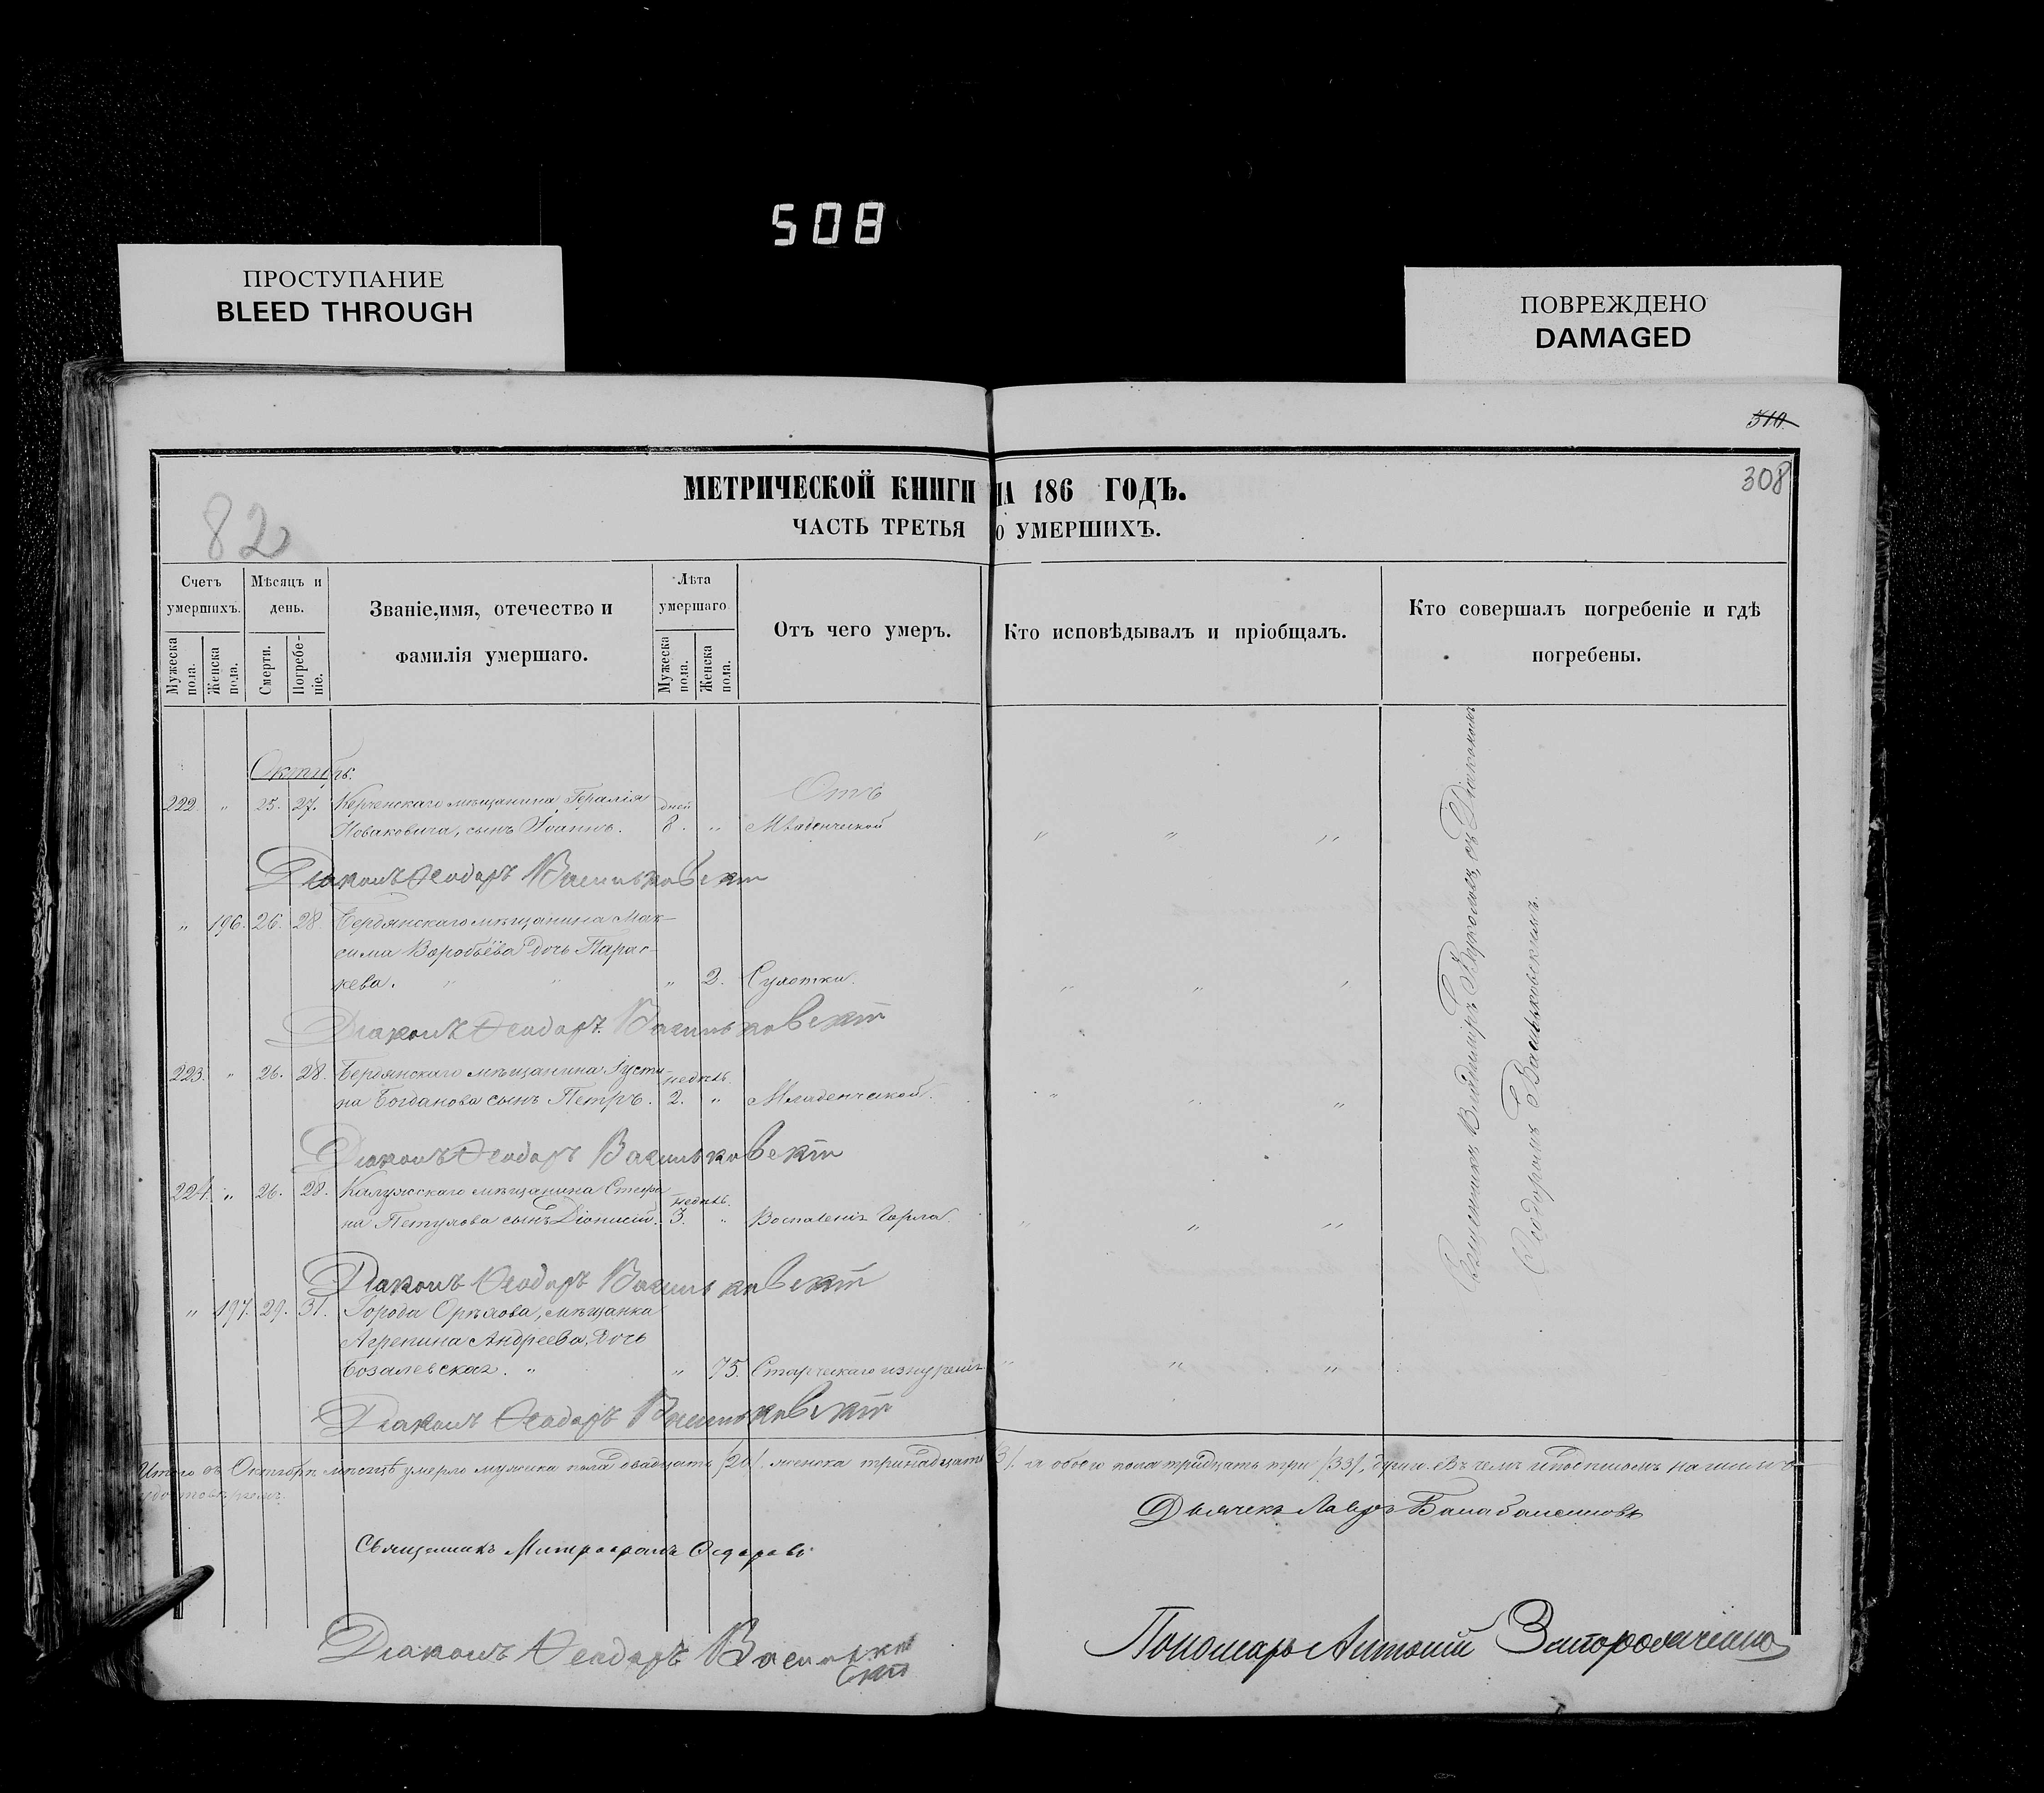 508
ПРОСТУПАНИЕ
BLEED THROUGH
ПОВРЕЖДЕНО
DAMAGED
310
308
82
МЕТРИЧЕСКОЙ КНИГИ НА 186 ГОДЪ.
ЧАСТЬ ТРЕТЬЯ О УМЕРШИХЪ.
Счетъ умершихъ.
Мужеска пола.
Женска пола.
Мѣсяцъ и день.
Смерти.
Погребе-ніе.
Званіе,имя, отечество и
фамилія умершаго.
Лѣта умершаго
Мужеска пола.
Женска пола.
Отъ чего умеръ.
Кто исповѣдывалъ и пріобщалъ.
Кто совершалъ погребеніе и гдѣ
погребены.
Октябрь.
Отъ
222 " 25. 27. Керченскаго мѣщанина дней
Новаковича, сынъ Іоаннъ. 8. " Младенческой " " "
Діаконъ Ѳеодоръ Васильковскій
" 196. 26. 28. Бердянскаго мѣщанина Мак-
сима Воробьёва дочь Парас-
кева. " " " 2. Сухотки. " " "
Діаконъ Ѳеодоръ Васильковскій
223. " 26. 28. Бердянскаго мѣщанина Густи- недѣль.
на Богданова сынъ Петръ. 2. " Младенческой. " " "
Діаконъ Ѳеодоръ Васильковскій
224. " 26. 28. Калужскаго мѣщанина Стефа недѣль.
на Петухова сынъ Діонисій. 3. " Воспаленія Горла. " " "
Діаконъ Ѳеодоръ Васильковскій
" 197. 29. 31. Города Орѣхова, мѣщанка
Агрепина Андреева, дочь
Бозалевская. " " 75. Старческаго изнуренія " " "
Діаконъ Ѳеодоръ Васильковскій
Священникъ Владиміръ съ Діакономъ
Ѳеодоромъ Васильковскимъ.
Итого въ Октябрѣ мѣсяцѣ умерло мужеска пола двадцать /20/. женска тринадцать /13/. а обоего пола тридцать три /33/, душъ. Въ чемъ и подписомъ нашимъ
удостовѣряемъ.
Священникъ Митрофанъ Ѳедоровъ
Дьячекъ Лавръ
Діаконъ Ѳеодоръ Васильков
скій
Пономарь Антоній Запорожченко